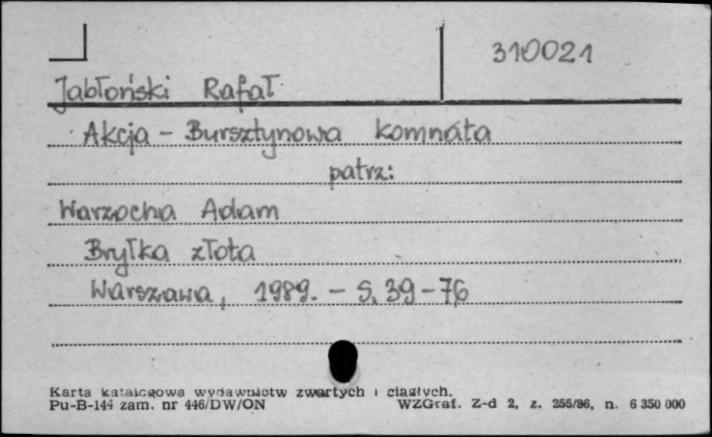 310021
Jabłoński Rafał
Akcja - Bursztynowa komnata
patrz:
Warzocha Adam
Bryłka złota
Warszawa, 1989. - S. 39-76
Karta katalogowa wydawnictw zwartych i ciągłych.
Pu-B-144 zam. nr 446/DW/ON WZGraf. Z-d 2, z. 255/86, n. 6 350 000